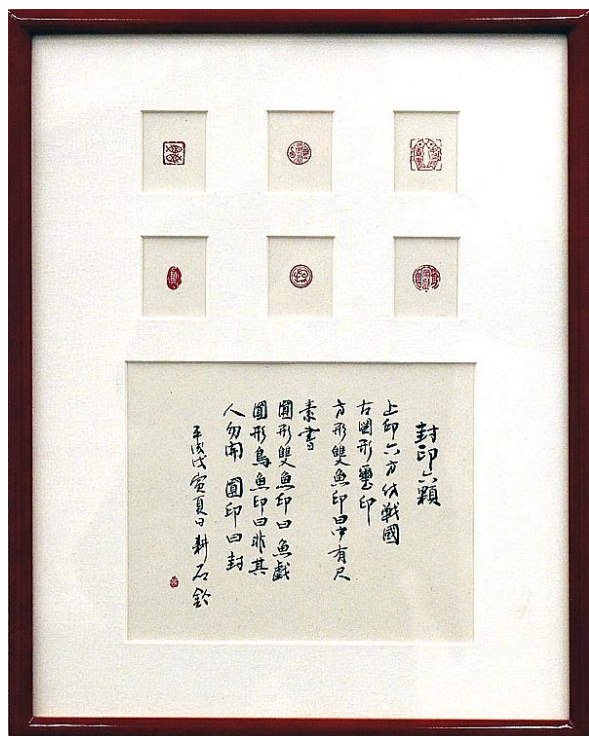 封印六顆
上印六方仿戰國
古圖形璽印
方形雙魚印曰中有尺
素書
圓形雙魚印曰魚戲
圓形鳥魚印曰非其
人勿開 圓印曰封
平成戊寅夏日耕石鈐